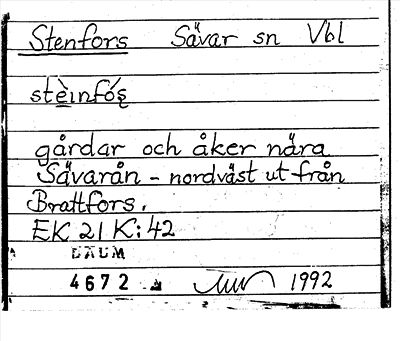 Stenfors Sävar sn Vbl
stèınfó̜s̜
gårdar och åker nära
Sävarån - nordväst ut från
Brattfors.
EK 21 K: 42
DAUM
4672 1992